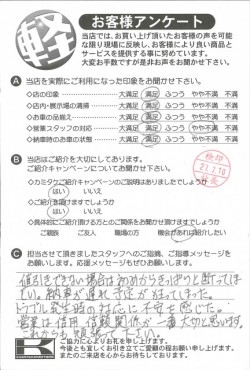 軽
お客様アンケート
当店では、お買い上げ頂いたお客様の声を可能
な限り現場に反映し、お客様により良い商品と
サービスを提供する事に努めています。
大変お手数ですが是非お声をお聞かせ下さい。
A 当店を実際にご利用になった印象をお聞かせ下さい。
◇店の印象 大満足 満足 ふつう やや不満 不満
◇店内・展示場の清掃 大満足 満足 ふつう やや不満 不満
◇お車の品揃え 大満足 満足 ふつう やや不満 不満
◇営業スタッフの対応 大満足 満足 ふつう やや不満 不満
◇納車時のお車の状態 大満足 満足 ふつう やや不満 不満
B 当店はご紹介を大切にしております。
ご紹介キャンペーンについてお聞かせ下さい。
◇カミタケご紹介キャンペーンのご説明はありましたでしょうか
はい いいえ
◇ご紹介頂けますでしょうか
はい いいえ
◇具体的にご紹介頂ける方とのご関係をお聞かせ頂けますでしょうか
ご親族 ご友人 職場の方 機会があれば紹介したい
検印
C 担当させて頂きましたスタッフへのご指摘、ご指導メッセージを
お願いします。応援メッセージもぜひお願いします。
値引きできない場合は初めからきっぱりと断ってほ
しい。納車が遅れ予定が狂ってしまった。
トラブル発生時の対応に不安を感じた。
営業は信用 信頼関係が一番大切と思います。
これからも頑張って下さい。
ご協力に心よりお礼を申し上げます。
今後とも宜しくお引き立てご愛顧の程お願い申し上げます。
またのご来店を心からお待ちしております。